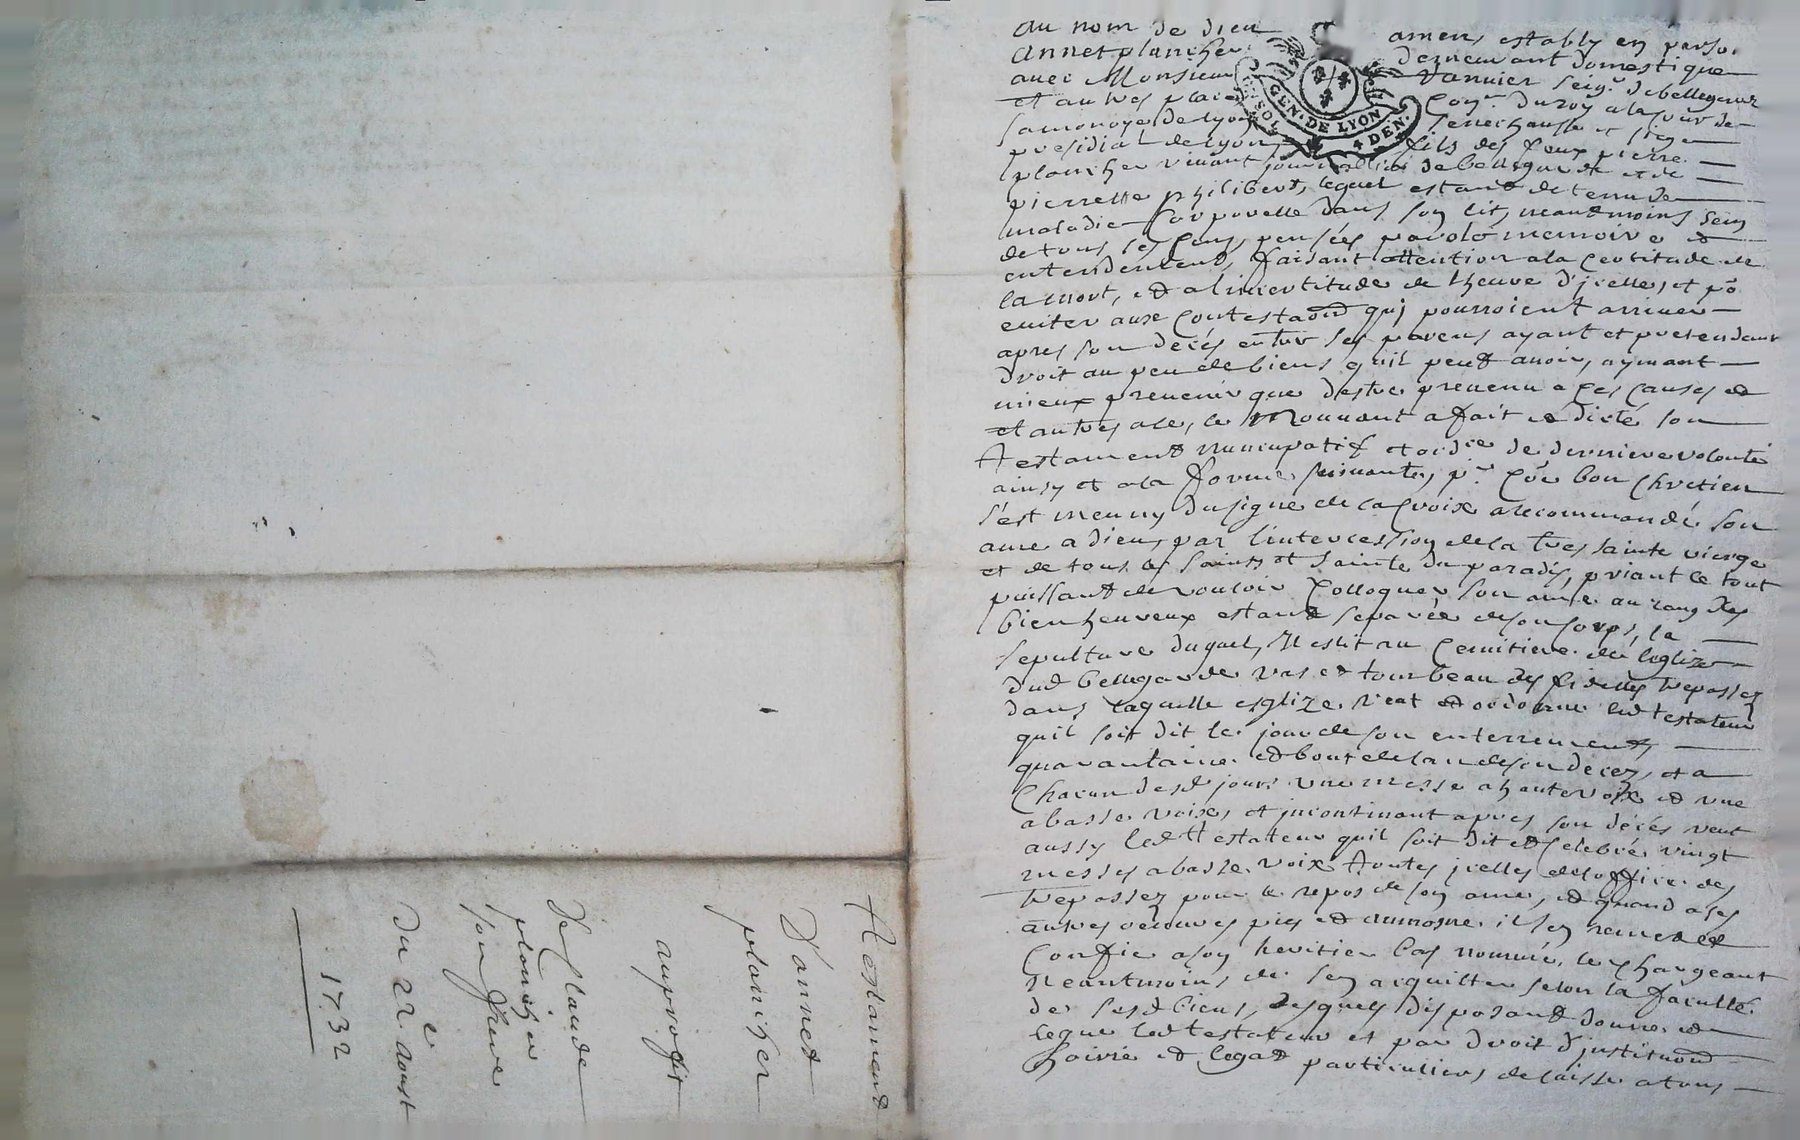 au nom de dieu amen, estably en perso.
Annet plancher demeurant domestique
avec Monsieur Vannier seigr. de bellegarde
et autres places Coner. du roy a la cour de
la monoye de lyon senechaussé et siege
presidial de lyon, fils des feux pierre
plancher vivant journallier de bellegarde et de
pierrette philibert, lequel estant detenu de
maladie Corporelle dans son lit, neantmoins sein
de tous ses sens, pensées parole memoire et
entendement, faisant attention a la Certitude de
la mort, et a l'incertitude de lheure d'jcelle, et po
eviter aux Contestaons quj pourroient arriver
apres son decés entre ses parens ayant et pretendant
droit au peu de biens quil peut avoir, aymant
mieux prevenir que destre prevenu a ces causes et
et autres a ce, le mouvant a fait et dicté son
testament nuncupatif et ordce de derniere volonté
ainsy et a la forme suivante, pr. Coe bon Chretien
s'est meuny du signe de la Croix a recommandé son
ame a dieu, par lintercession de la tres sainte vierge
et de tous les saints et sainte du paradis, priant le tout
puissant de vouloir Colloquer son ame au rang des
bien heureux estant separée de son corps, la
sepulture duquel, Il eslit au Cemitiere de leglize
dud bellegarde vas et tombeau des fidelles trepassez
dans laquelle esglize veut et ordonne led testateur
quil soit dit le jour de son enterrement,
quarantaine et bout de lan de son decez, et a
Chacun desd jours une messe a haute voix et une
a basse voix, et jncontinant apres son décés veut
aussy led testateur quil soit dit et Celebré vingt
messes a basse voix toutes jcelles de loffice des
trepassez pour le repos de son ame, et quand a ses
autres oeuvres pies et aumosne il sen remet et
Confie a son heritier bas nommé, le Chargeant
neantmoins de sen acquitter selon la faculté
de sesd biens, desquels disposant donne et
legue led testateur et par droit d'jnstituon
hoirie et legat particuliers delaisse a tous
GEN. DE LYON.
SOL
4 DEN.
Testament
D'annet
plancher
auproffit
De Claude
plancher
son frere
Du 22e aoust
1732